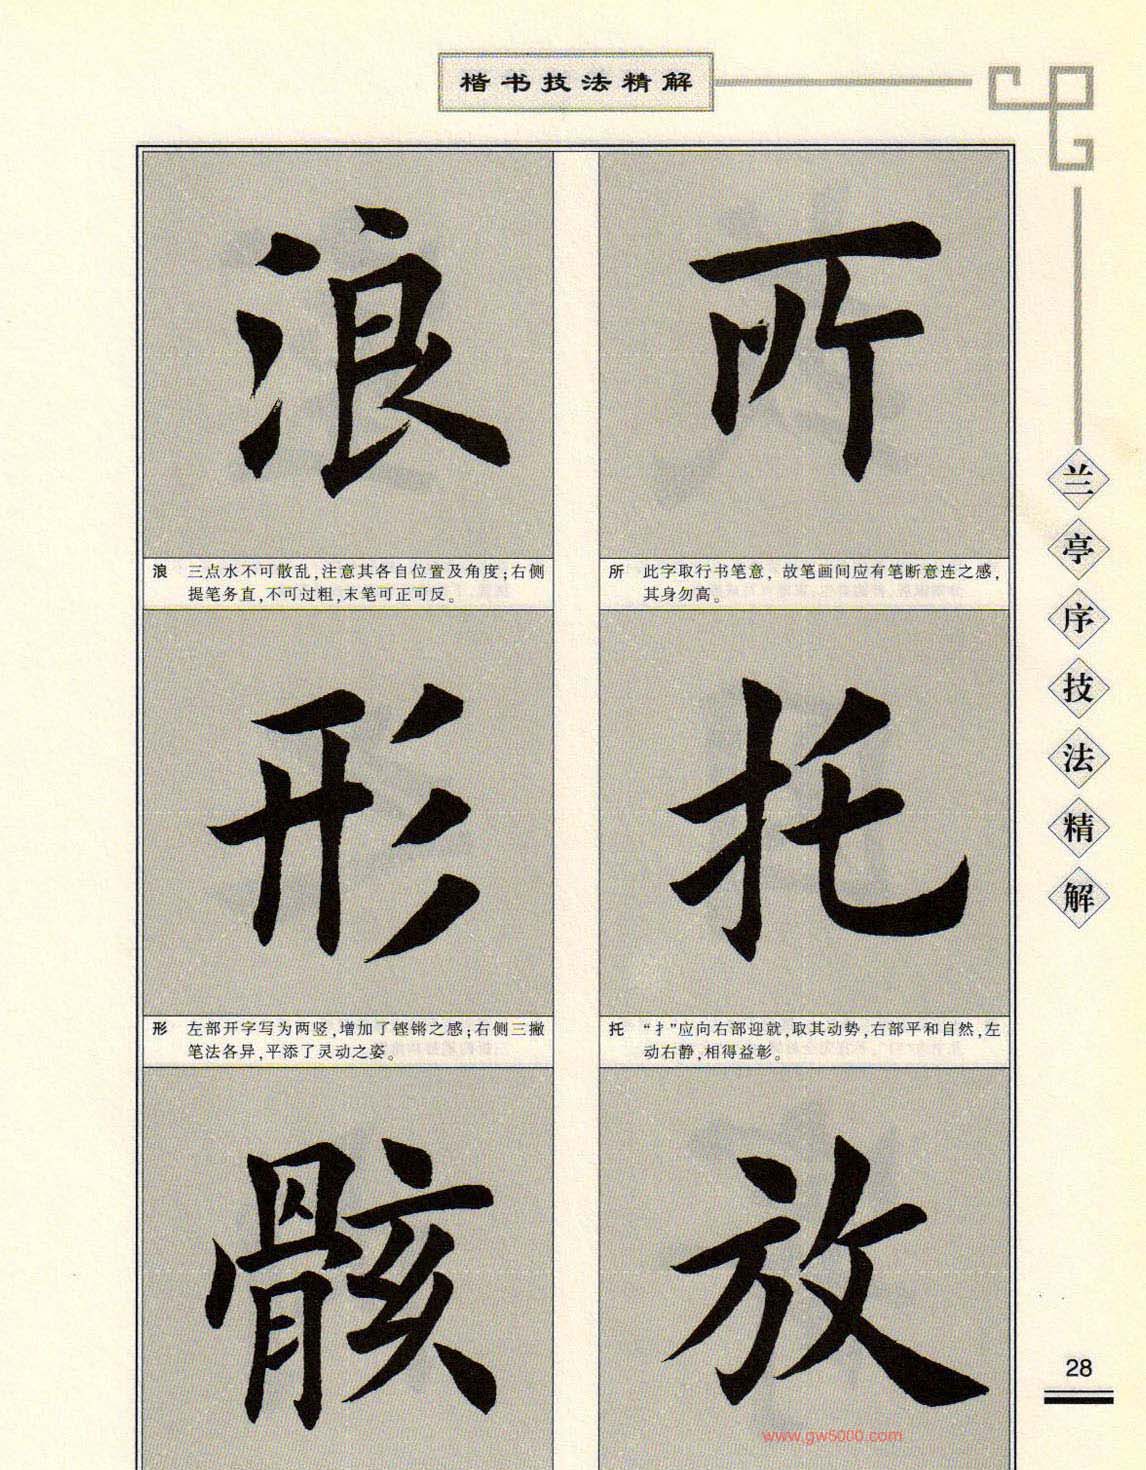 楷书技法精解
浪
所
浪 三点水不可散乱,注意其各自位置及角度;右侧
提笔务直,不可过粗,末笔可正可反。
所 此字取行书笔意,故笔画间应有笔断意连之感,
其身勿高。
形
托
形 左部开字写为两竖,增加了铿锵之感;右侧三撇
笔法各异,平添了灵动之姿。
托 “扌”应向右部迎就,取其动势,右部平和自然,左
动右静,相得益彰。
骸
放
兰亭序技法精解
28
www.gw5000.com